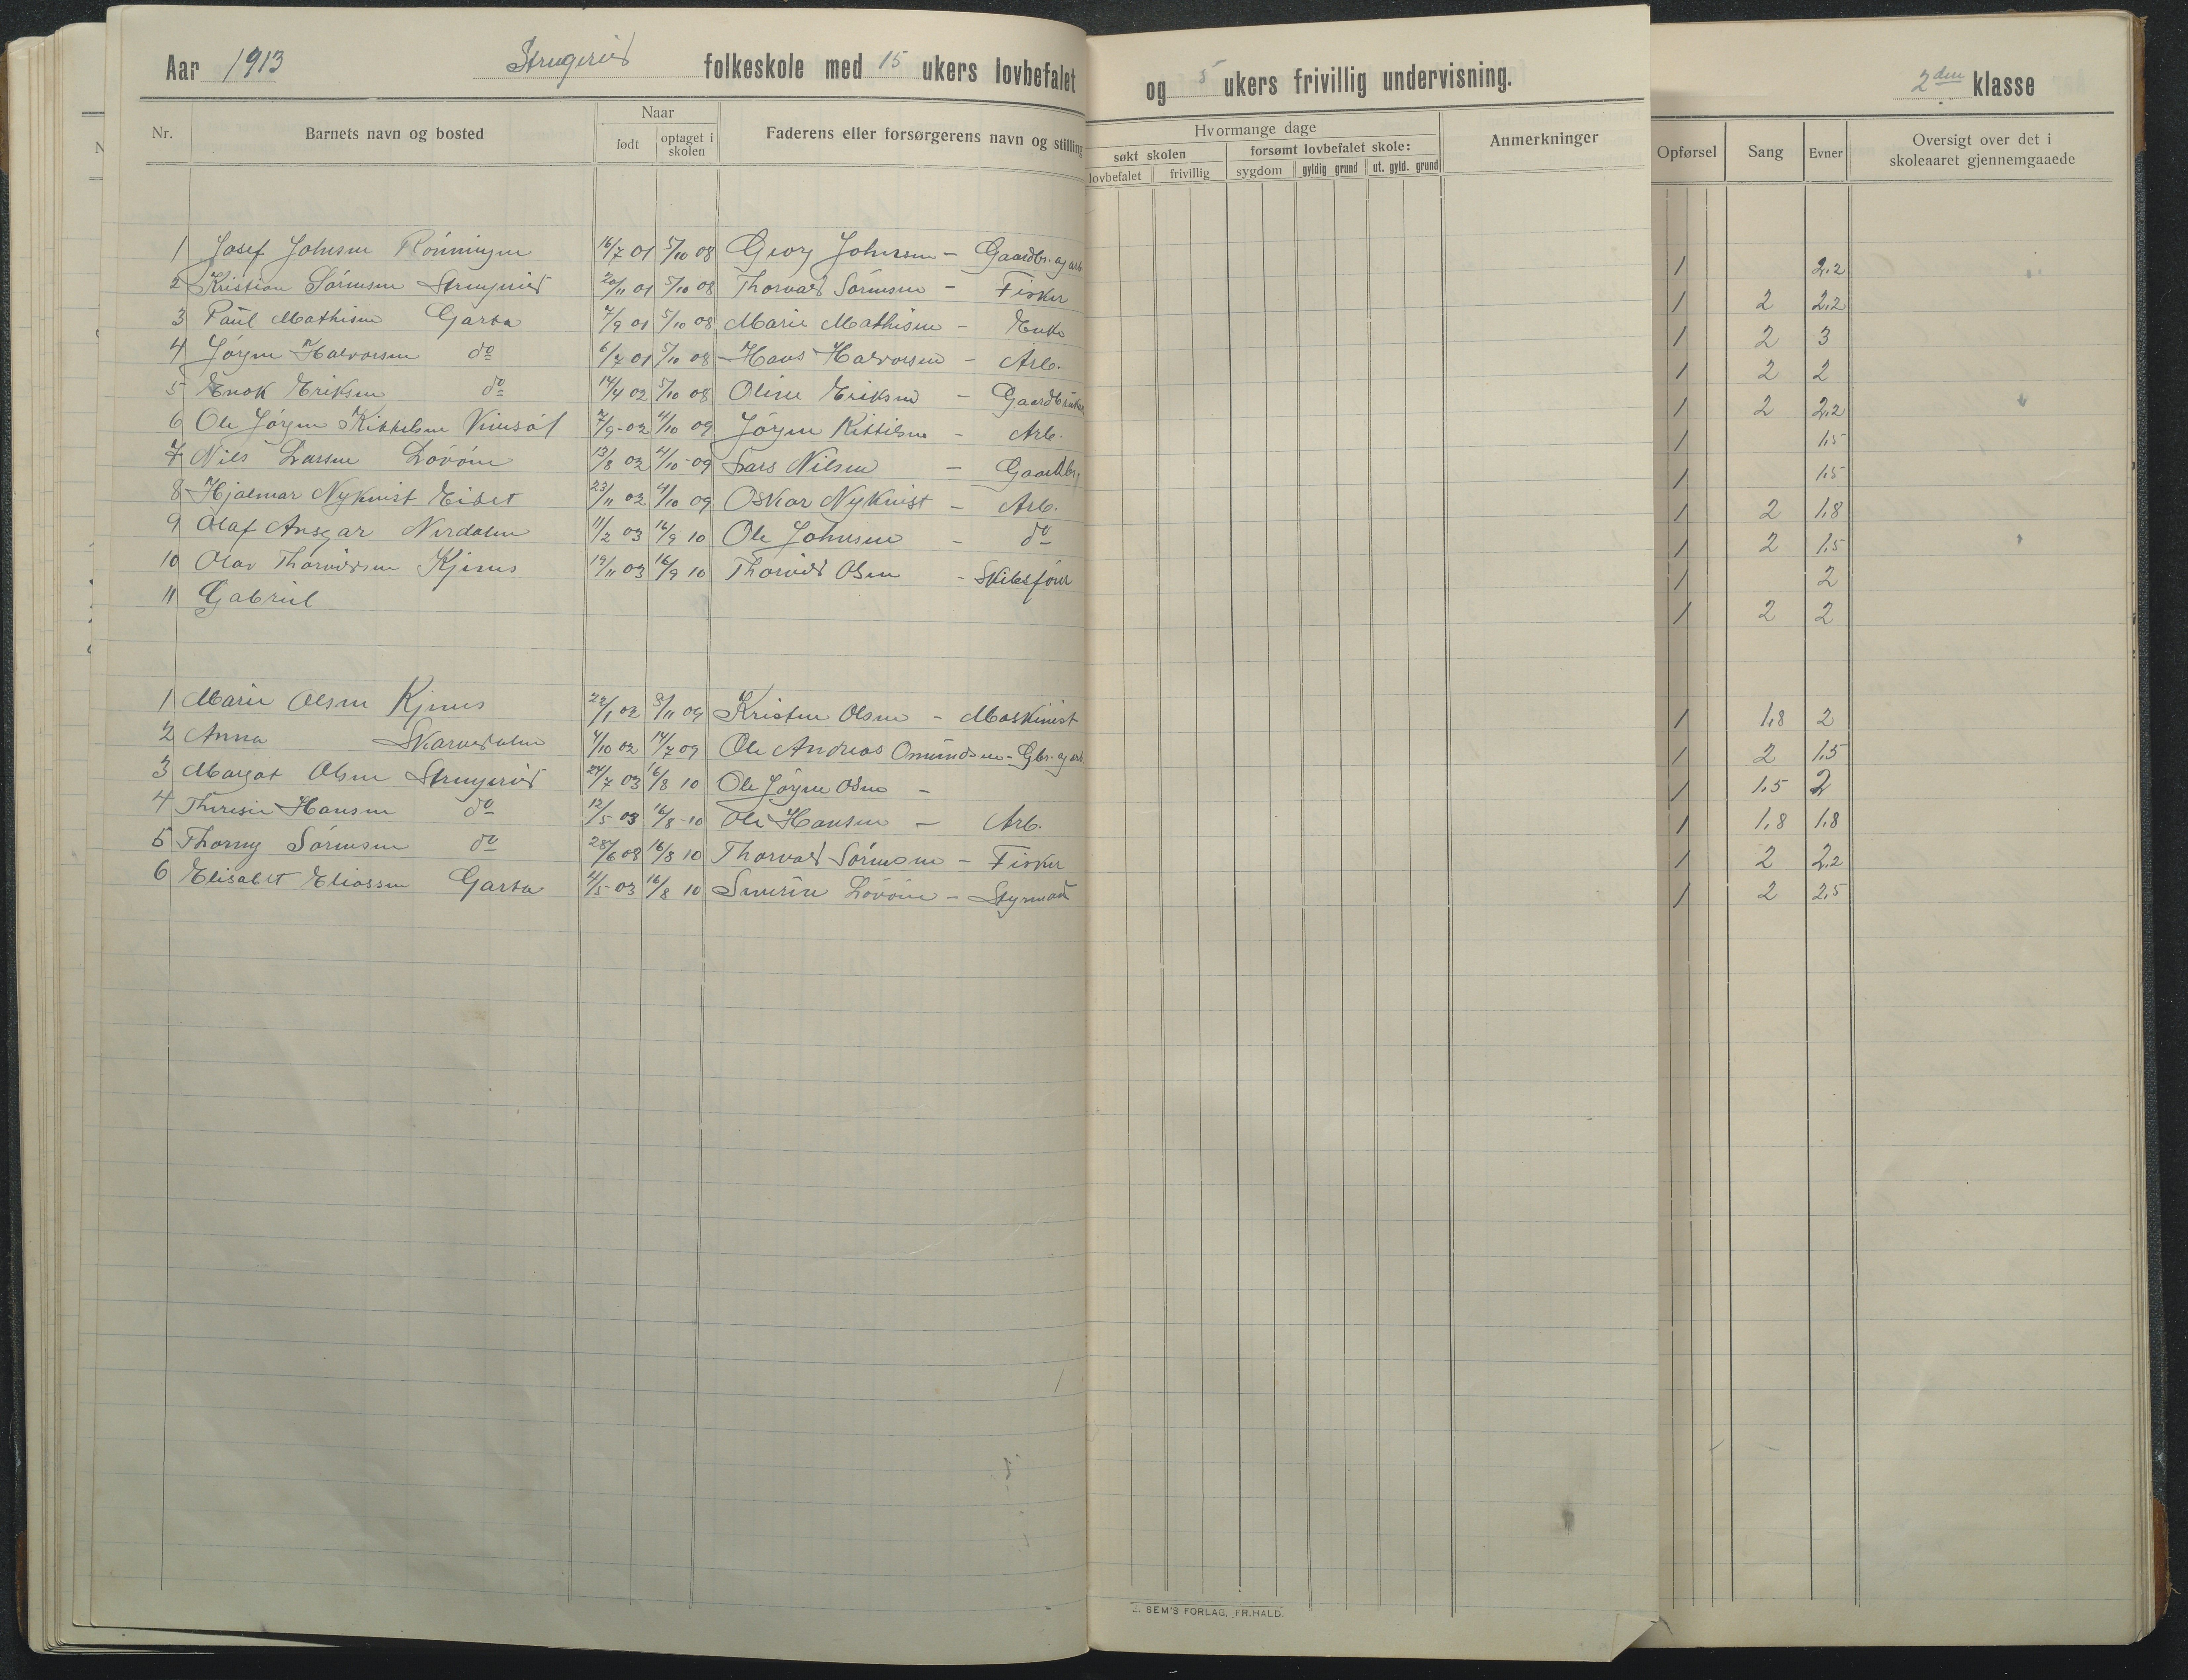 Aar 1913 folkeskole med 15 ukers lovbefalet og 5 ukers frivillig undervisning. 2den klasse
Nr. Barnets navn og bosted Naar født optaget i skolen Faderens eller forsørgerens navn og stilling Hvormange dage søkt skolen lovbefalet frivillig forsømt lovbefalet skole: sygdom gyldig grund ut. gyld. grund Anmerkninger Opførsel Sang Evner Oversigt over det i skoleaaret gjennemgaaede
1 Josef Johnsen Rönningen 16/7 01 5/10 08 Georg Johnsen - Gaardbr. og arb 1 2,2
2 Kristian Sörensen 20/11 01 5/10 08 Thorvald Sörensen - Fisker 1 2 2,2
3 Paul Mathisen Garta 7/9 01 5/10 08 Marie Mathisen - Enke 1 2 3
4 Jörgen Halvorsen do 6/7 01 5/10 08 Hans Halvorsen - Arb. 1 2 2
5 Enok Eriksen do 14/4 02 5/10 08 Oline Eriksen - Gaardbruker 1 2 2,2
6 Ole Jörgen Kittelsen 7/9-02 4/10 09 Jörgen Kittilsen - Arb. 1 1,5
7 Nils Larsen Lövöen 13/8 02 4/10-09 Lars Nilsen - Gaardbr. 1 1,5
8 Hjalmar Nykvist Eidet 23/11 02 4/10 09 Oskar Nykvist - Arb. 1 2 1,8
9 Olaf Ansgar Nerdalen 11/2 03 16/9 10 Ole Johnsen - do 1 2 1,5
10 Olav Kjenes 19/11 03 16/9 10 Thorvald Olsen - Skibsförer 1 2
11 Gabriel 1 2 2
1 Marie Olsen Kjenes 22/1 02 3/11 09 Kristen Olsen - Maskinist 1 1,8 2
2 Anna 4/10 02 14/7 09 Ole Andreas Omundsen - Gbr. og arb 1 2 1,5
3 Margot Olsen 24/7 03 16/8 10 Ole Jörgen Olsen - 1 1,5 2
4 Theresie Hansen do 12/5-03 16/8-10 Ole Hansen - Arb. 1 1,8 1,8
5 Thorny Sörensen do 28/6 08 16/8 10 Thorvald Sörensen - Fisker 1 2 2,2
6 Elisabet Eliassen Garta 4/5-03 16/8 10 Lövöen - Styrmand 1 2 2,5
SEM'S FORLAG, FR.HALD.